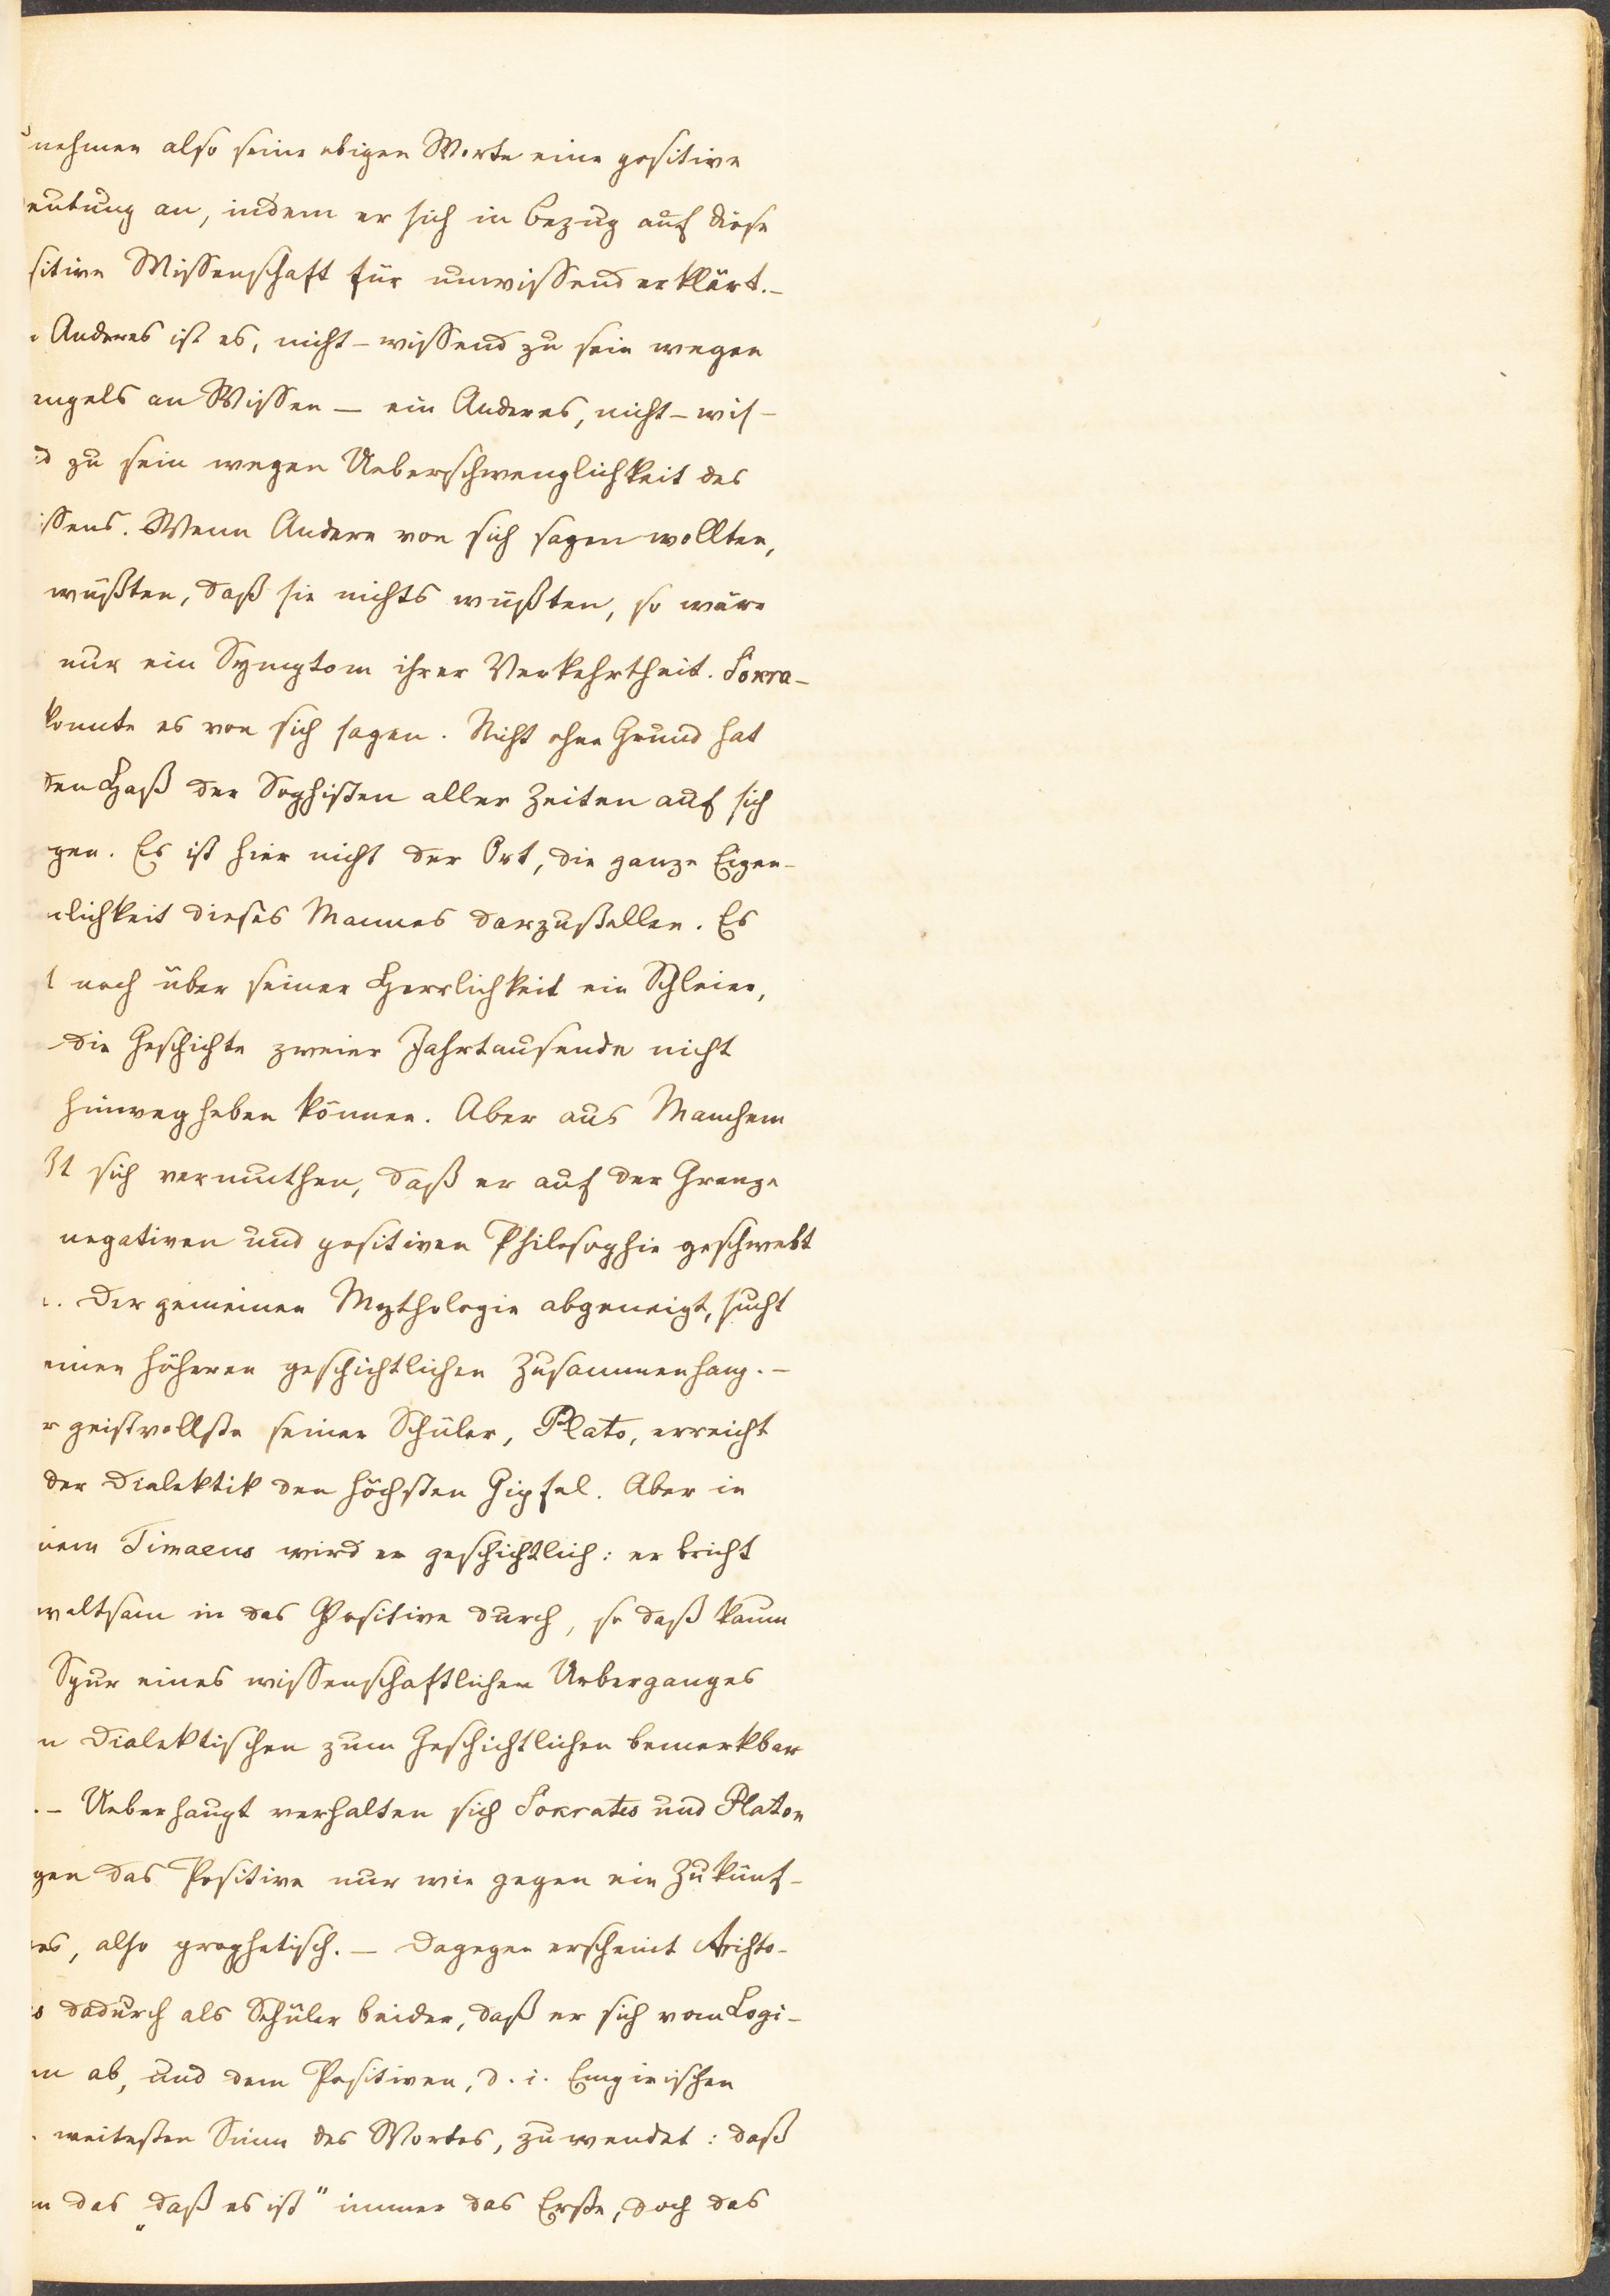 nehmen also seine obigen Worte eine positive
eutung an, indem er sich in Bezug auf diese
sitive Wissenschaft für unwissend erklärt. –
Anderes ist es, nicht-wissend zu sein wegen
ngels an Wissen – ein Anderes, nicht-wis-
d zu sein wegen Ueberschwenglichkeit des
issens. Wenn Andere von sich sagen wollten,
wüßten, daß sie nichts wüßten, so wäre
nur ein Symptom ihrer Verkehrtheit. Sokra-
konnte es von sich sagen. Nicht ohne Grund hat
den Haß der Sophisten aller Zeiten auf sich
gen. Es ist hier nicht der Ort, die ganze Eigen-
lichkeit dieses Mannes darzustellen. Es
t noch über seiner Herrlichkeit ein Schleier,
die Geschichte zweier Jahrtausende nicht
hinwegheben können. Aber aus Manchem
ßt sich vermuthen, daß er auf der Grenze
negativen und positiven Philosophie geschwebt
. Der gemeinen Mythologie abgeneigt, sucht
einen höheren geschichtlichen Zusammenhang. –
r geistvollste seiner Schüler, Plato, erreicht
der Dialektik den höchsten Gipfel. Aber in
nem Timaeus wird er geschichtlich: er bricht
waltsam in das Positive durch, so daß kaum
Spur eines wissenschaftlichen Ueberganges
n Dialektischen zum Geschichtlichen bemerkbar
. – Ueberhaupt verhalten sich Sokrates und Platon
gen das Positive nur wie gegen ein Zukünf-
es, also prophetisch. – Dagegen erscheint Aristo-
s dadurch als Schüler beider, daß er sich vom Logi-
n ab, und dem Positiven, d. i. Empirischen
weitesten Sinn des Wortes, zuwendet: daß
m das „daß es ist" immer das Erste, doch das